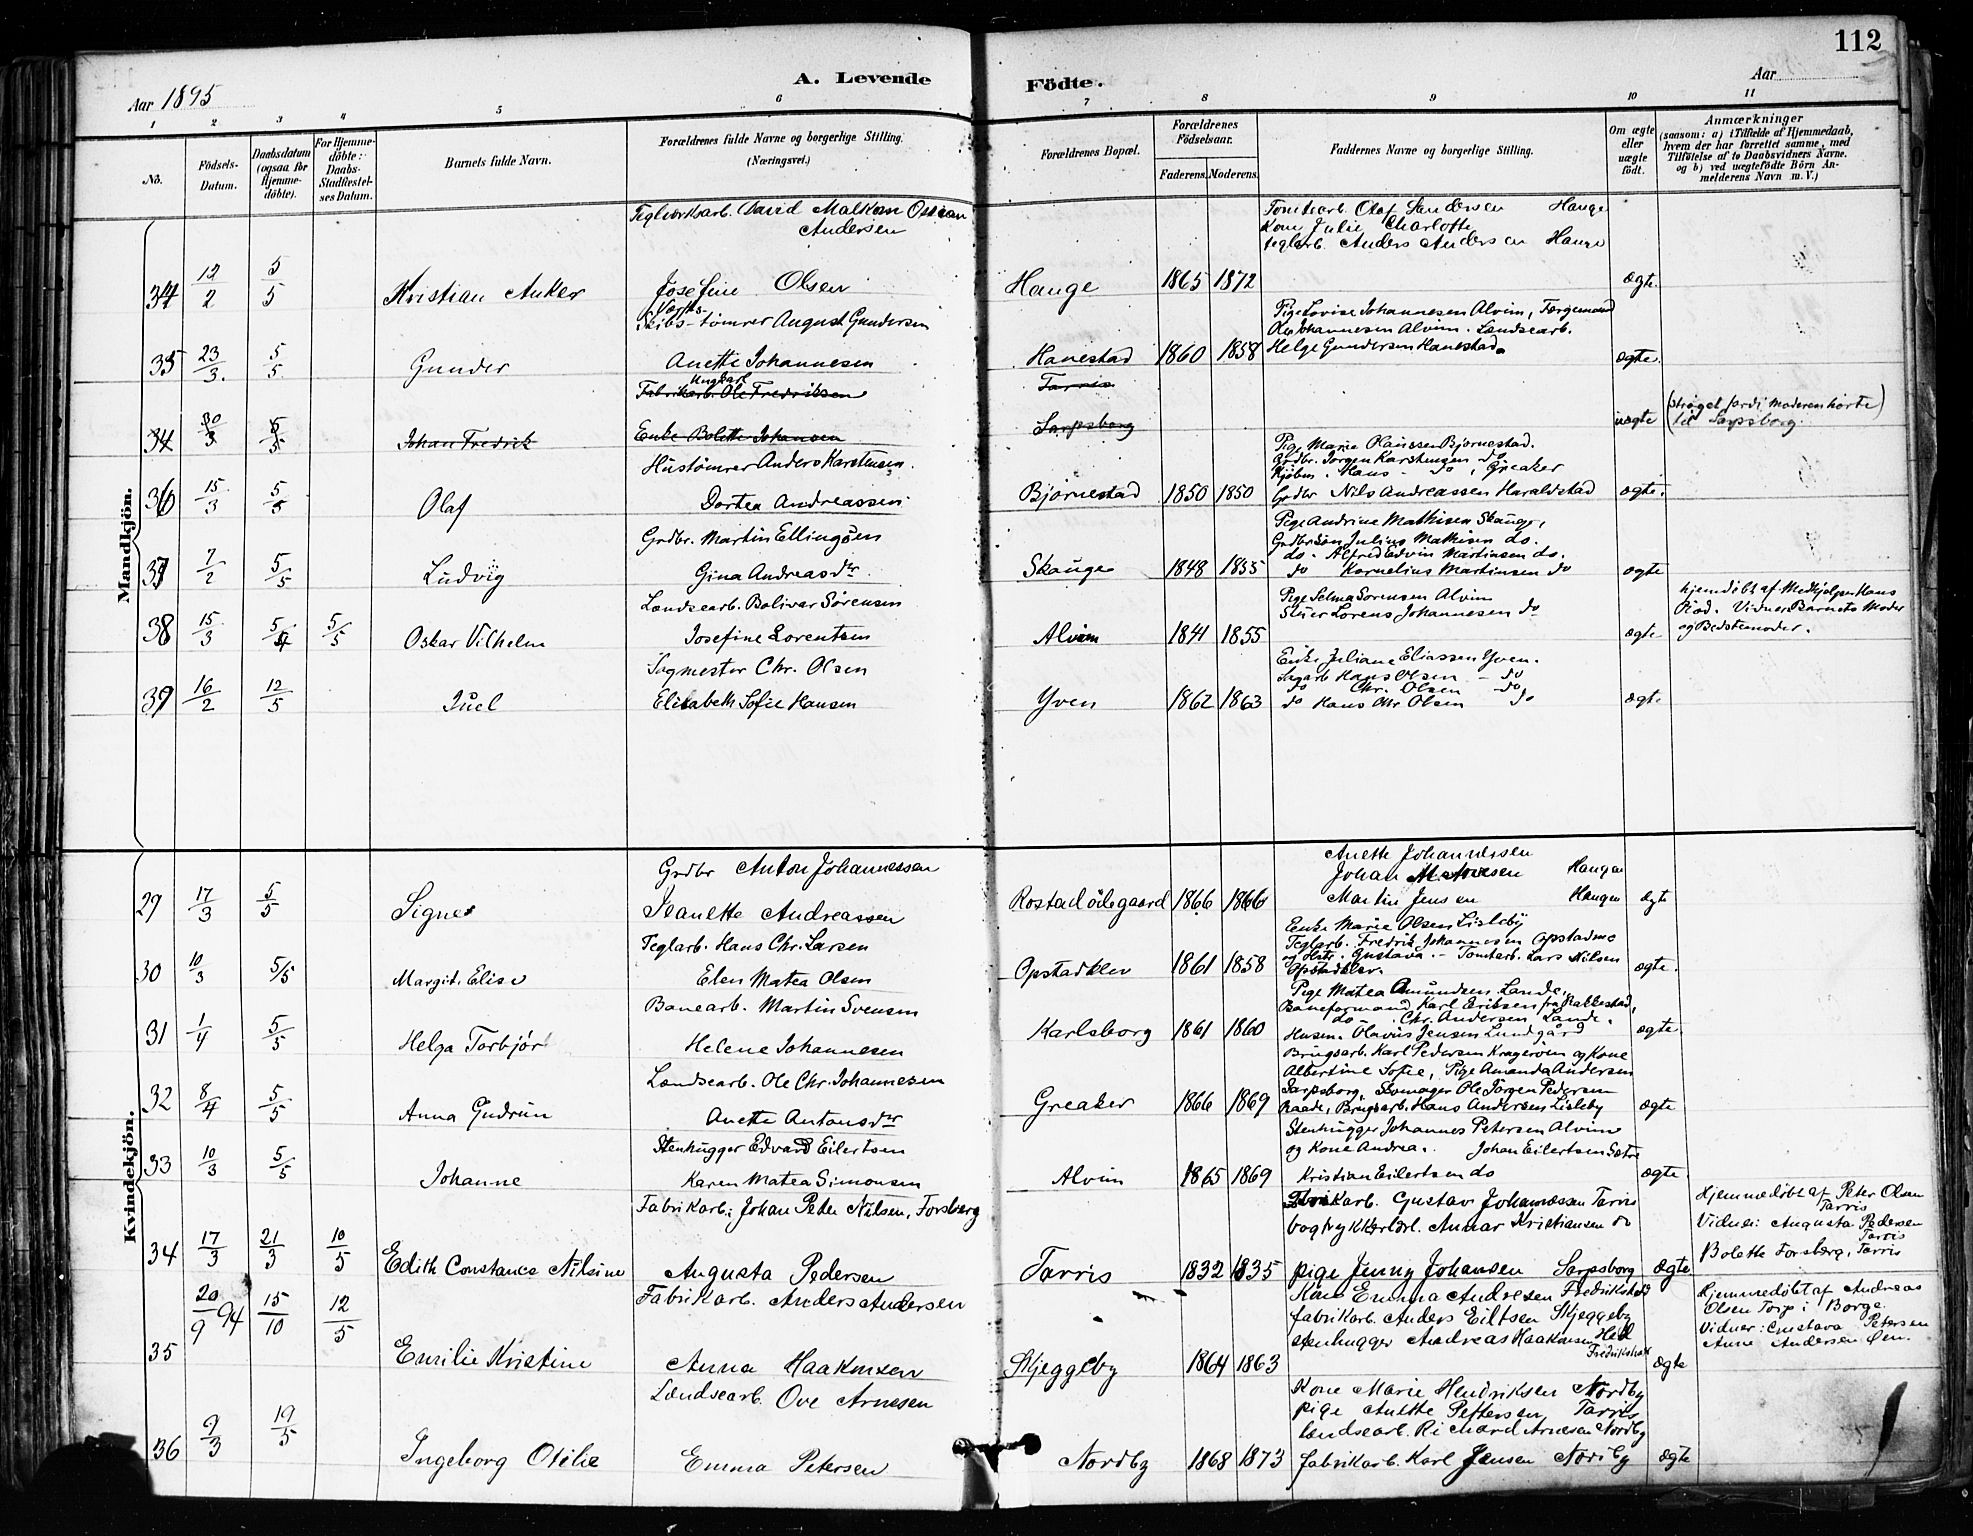 112
A. Levende Födte.
Aar 1895
Aar
1 2 3 4 5 6 7 8 9 10 11
No.
Födsels-Datum.
Daabsdatum (ogsaa for Hjemme-döbte).
For Hjemme-döbte: Daabs-Stadfæstel-ses Datum.
Barnets fulde Navn.
Forældrenes fulde Navne og borgerlige Stilling. (Næringsvei.)
Forældrenes Bopæl.
Forældrenes Födselsaar.
Faderens. Moderens.
Faddernes Navne og borgerlige Stilling.
Om ægte eller uægte födt.
Anmærkninger
(saasom: a) i Tilfælde af Hjemmedaab, hvem der har forrettet samme, med Tilföielse af to Daabsvidners Navne. og b) ved uægtefödte Börn An-melderens Navn m. V.)
Mandkjön.
Teglverksarb. David Malkom Ossian
Andersen
Tomtearb. Olaf Gundersen Hauge
Kone Julie Charlotte
teglarb. Anders Andersen Hauge
34 12/2 5/5 Kristian Anker Josefine Olsen Hauge 1865 1872 ægte.
Værfts-
Skibs-tømrer August Gundersen
Pige Lovise Johannesen Alvim, Færgemand
Ole Johannesen Alvim. Lændsearb.
35 23/3. 5/5 Gunder Anette Johannesen Hanestad 1860 1858 Helge Gundersen Hanestad. ægte.
Ungkarl
Fabrikarb. Ole Fredriksen Tarris
34 30/3 5/5 Johan Fredrik Enke Bolette Johansen Sarpsborg uægte (strøget fordi Moderen hørte) til Sarpsborg.
Hustømrer Anders Karstensen.
Pige Marie Olaussen Bjørnestad.
Grdbr. Jørgen Karstensen do
Kjøbm. Hans do, Greaker
36 15/3 5/5 Olaf Dortea Andreassen Bjørnestad 1850 1850 Grdbr Nils Andreassen Haraldstad ægte.
Grdbr. Martin Ellingsen
Pige Andrine Mathisen Skauge,
Grdbrsøn Julius Mathisen do.
do. Alfred Edvin Martinsen do.
37 7/2 5/5 Ludvig Gina Andreasdr Skauge 1848 1855 do Kornelius Martinsen do ægte
Lændsearb. Bolivar Sørensen
Pige Selma Sørensen Alvim
Stuer Lorens Johannesen do
hjemdøbt af Medhjælper Hans
Riød. Vidner Barnets Moder
og Bedstemoder.
38 15/3 5/4 5/5 Oskar Vilhelm Josefine Lorentsen Alvim 1841 1855 ægte
Sagmester Chr. Olsen
Enke Juliane Eliassen Yven.
Sagarb Hans Olsen - do
do Chr. Olsen - do
39 16/2 12/5 Juel Elisabeth Sofie Hansen Yven 1862 1863 do Hans Chr. Olsen do ægte
Kvindekjön.
Grdbr Anton Johannessen
Anette Johannessen
Johan Haugen
29 17/3 5/5 Signe Jeanette Andreassen Rostadødegaard 1866 1866 Martin Jensen Haugen ægte
Teglarb. Hans Chr. Larsen
Enke Marie Olsen Lisleby
Teglarb. Fredrik Johannesen Opstadmo
og Hstr. Gustava. - Tomtarb. Lars Nilsen
30 10/3 5/5 Margit Elise Elen Matea Olsen Opstadklev 1861 1858 Opstadklev. ægte.
Banearb. Martin Svensen
Pige Matea Amundsen Lande,
Baneformand Karl Eriksen fra Rakkestad,
do - Chr. Andersen Lande.
31 1/4 5/5 Helga Torbjør Helene Johannesen Karlsborg 1861 1860 Husm. Olavus Jensen Lundgård ægte.
Lændsearb. Ole Chr. Johannesen
Brugsarb. Karl Pedersen Kragerøen og Kone
Albertine Sofie, Pige Amanda Andersen
Sarpsborg, Skomager Ole Jørgen Pedersen
32 8/4 5/5 Anna Gudrun Anette Antonsdr Greaker 1866 1869 Raade, Brugsarb. Hans Andersen Lisleby ægte
Stenhugger Edvard Eilertsen
Stenhugger Johannes Petersen Alvim
og Kone Andrea. Johan Eilertsen Sætre
33 10/3 5/5 Johanne Karen Matea Simonsen Alvim 1865 1869 Kristian Eilertsen do ægte
Fabrikarb; Johan Peter Nilsen, Forsberg
Fabrikarb. Gustav Johannesen Tarris
bogtrykkerlærl. Annar Kristiansen do
Hjemmedøbt af Peter Olsen
Tarris
Vidner: Augusta Pedersen
Tarris
Bolette Forsberg, Tarris
34 17/3 21/3 10/5 Edith Constance Nilsine Augusta Pedersen Tarris 1832 1835 pige Jenny Johansen Sarpsborg ægte
Fabrikarb. Anders Andersen
Kone Emma Andresen Fredrikstad
fabrikarb. Anders Eiltsen Skjeggeby
stenhugger Andreas Haakonsen
Fredrikstad
Hjemmedøbt af Andreas
Olsen Torp i Borge.
Vidner: Gustava Petersen
Anne Andersen Øen.
35 20/9 94 15/10 12/5 Emilie Kristine Anna Haakonsen Skjeggeby 1864 1863 ægte
Lændsearb. Ove Arnesen
Kone Marie Hendriksen Nordby
pige Anette Pettersen Tarris
lændsearb. Richard Arnesen Nordby
36 9/3 19/5 Ingeborg Otilie Emma Petersen Nordby 1868 1873 fabrikarb. Karl Jensen Nordby ægte